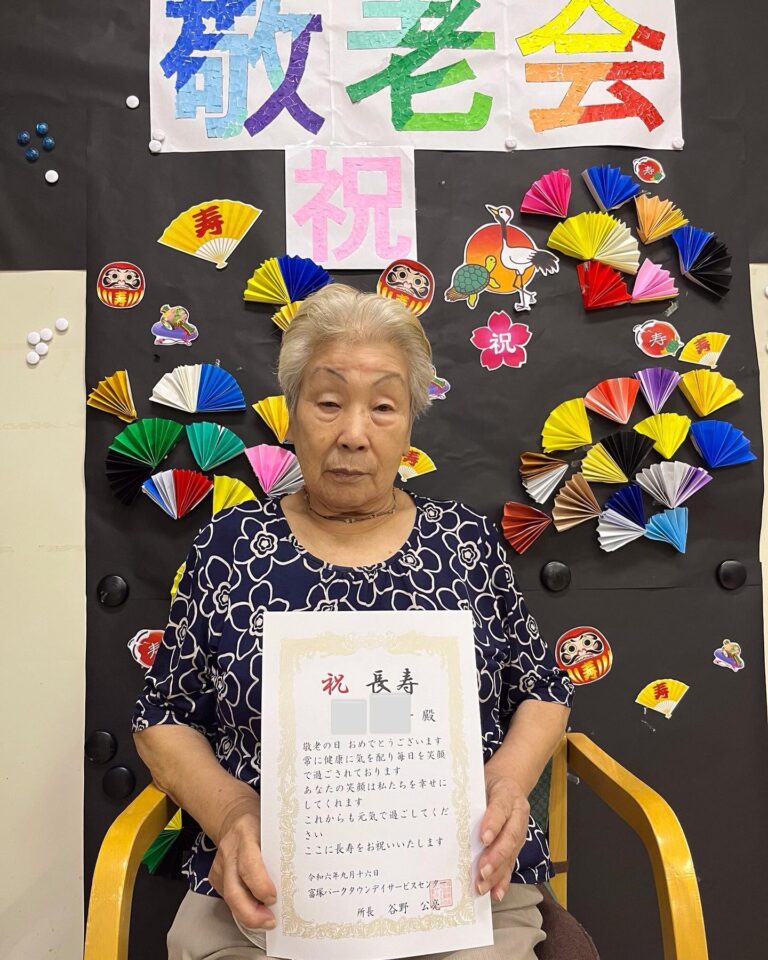 敬老会
祝
寿
寿
祝
寿
寿
寿
寿
寿
寿
祝 長寿
殿
敬老の日 おめでとうございます
常に健康に気を配り毎日を笑顔
で過ごされております
あなたの笑顔は私たちを幸せに
してくれます
これからも元気で過ごしてくださ
い
ここに長寿をお祝いいたします
令和六年九月十六日
富塚パークタウンデイサービスセンター
所長 谷野 公亮